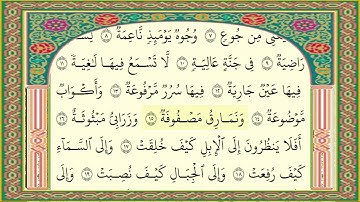 مِن جُوعٍ ۝٧ وُجُوهٌ يَوْمَئِذٍ نَّاعِمَةٌ ۝٨
رَاضِيَةٌ ۝٩ فِى جَنَّةٍ عَالِيَةٍ ۝١٠ لَّا تَسْمَعُ فِيهَا لَٰغِيَةً ۝١١
فِيهَا عَيْنٌ جَارِيَةٌ ۝١٢ فِيهَا سُرُرٌ مَّرْفُوعَةٌ ۝١٣ وَأَكْوَابٌ
مَّوْضُوعَةٌ ۝١٤ وَنَمَارِقُ مَصْفُوفَةٌ ۝١٥ وَزَرَابِىُّ مَبْثُوثَةٌ ۝١٦
أَفَلَا يَنظُرُونَ إِلَى ٱلْإِبِلِ كَيْفَ خُلِقَتْ ۝١٧ وَإِلَى ٱلسَّمَآءِ
كَيْفَ رُفِعَتْ ۝١٨ وَإِلَى ٱلْجِبَالِ كَيْفَ نُصِبَتْ ۝١٩ وَإِلَى